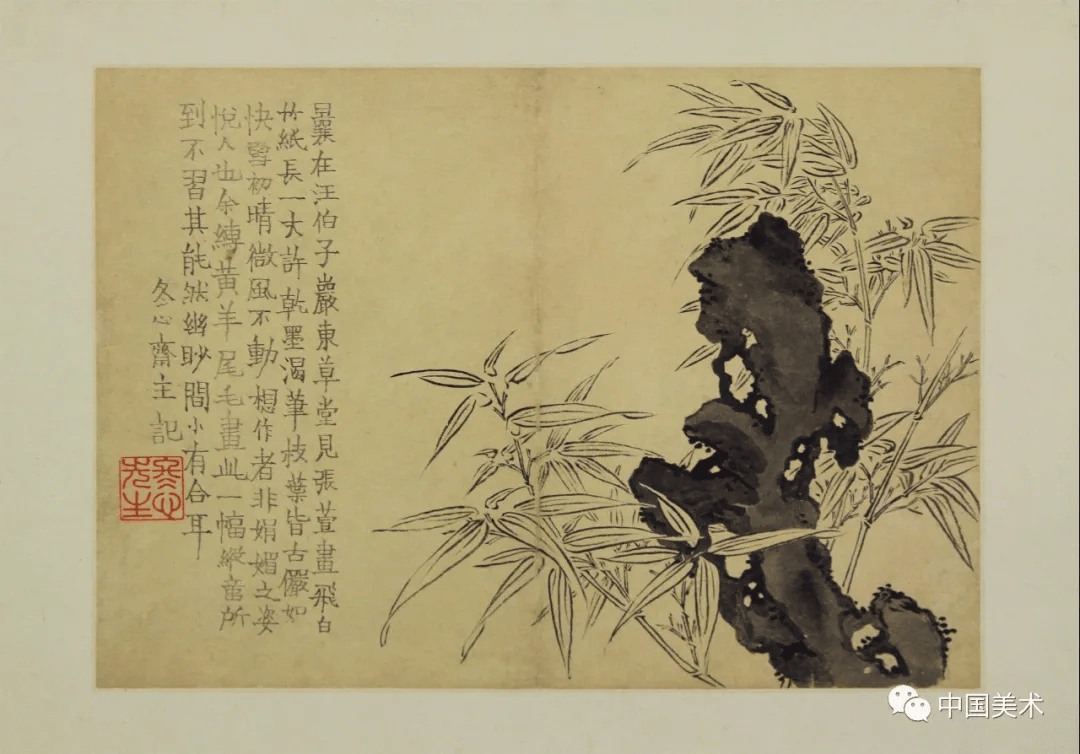 曩在汪伯子巖東草堂見張萱畫飛白
竹紙長一丈許乾墨渴筆枝葉皆古儼如
快雪初晴微風不動想作者非娟媚之姿
悅人也余縛黃羊尾毛畫此一幅縱意所
到不習其能然幽眇間小有合耳
冬心齋主記
冬心先生
中国美术